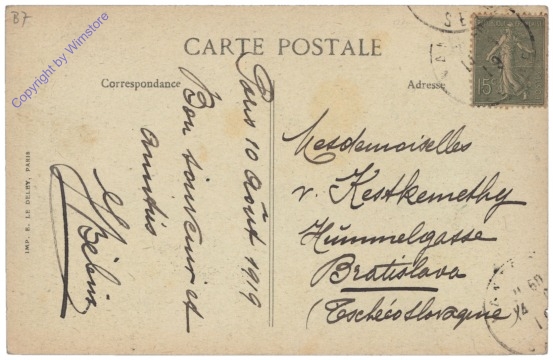 B7
Copyright by Wimstore
CARTE POSTALE
Correspondance
Adresse
15c
IMP. E. LE DELEY, PARIS
Paris 10 août 1919
Bon souvenir et
amitiés
Mesdemoiselles
v. Kestkemethy
Hummelgasse
Bratislava
(Tschécoslovaquie)